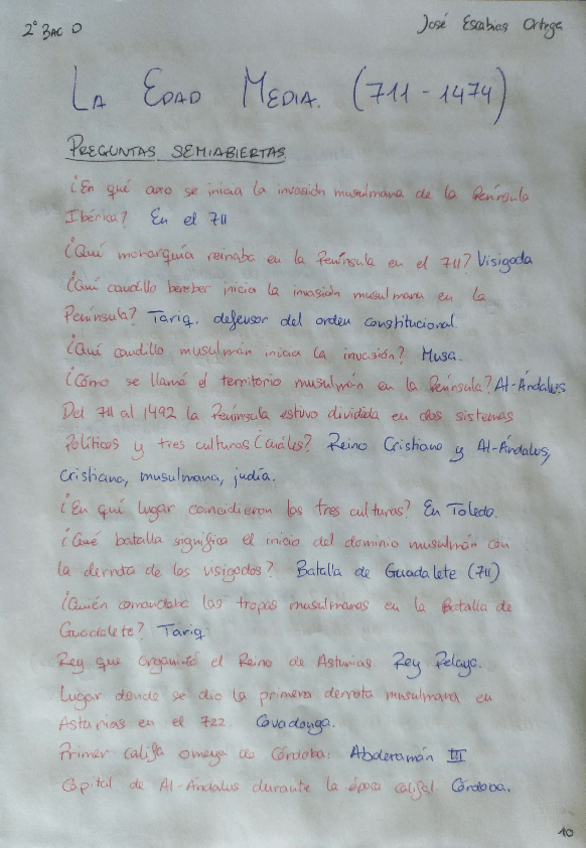 2º Bac D
José Escabias Ortega
LA EDAD MEDIA. (711 - 1474)
PREGUNTAS SEMIABIERTAS
¿En qué año se inicia la invasión musulmana de la Península
Ibérica? En el 711
¿Qué monarquía reinaba en la Península en el 711? Visigoda
¿Qué caudillo bereber inicia la invasión musulmana en la
Península? Tariq, defensor del orden constitucional.
¿Qué caudillo musulmán inicia la invasión? Musa.
¿Cómo se llamó el territorio musulmán en la Península? Al-Ándalus
Del 711 al 1492 la Península estuvo dividida en dos sistemas
políticos y tres culturas ¿cuáles? Reino Cristiano y Al-Ándalus,
cristiano, musulmana, judía.
¿En qué lugar coincidieron las tres culturas? En Toledo.
¿Qué batalla significa el inicio del dominio musulmán con
la derrota de los visigodos? Batalla de Guadalete (711)
¿Quién comandaba las tropas musulmanas en la Batalla de
Guadalete? Tariq
Rey que organizó el Reino de Asturias. Rey Pelayo.
Lugar donde se dio la primera derrota musulmana en
Asturias en el 722. Covadonga.
Primer califa omeya de Córdoba: Abderamán III
Capital de Al-Ándalus durante la época califal. Córdoba.
10